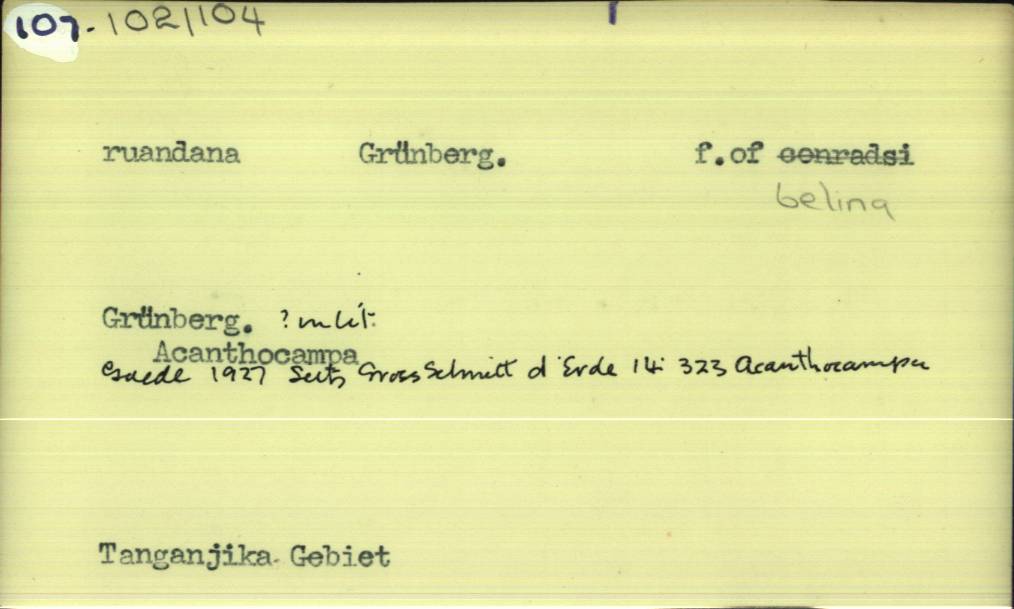 107.102/104
ruandana Grünberg. f.of conradsi
belina
Grünberg. ? in lit.
Acanthocampa
Gaede 1927 Seitz Gross Schmett d Erde 14: 323 Acanthocampa
Tanganjika Gebiet